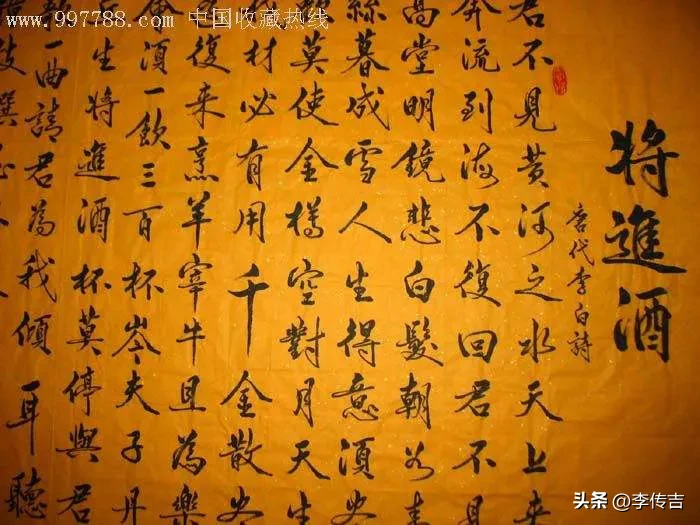 www.997788.com 中国收藏热线
将進酒
唐代李白詩
君不見黄河之水天上来
奔流到海不復回君不見
高堂明鏡悲白髮朝如青
絲暮成雪人生得意須
莫使金樽空對月天生
材必有用千金散
復来烹羊宰牛且為樂
須一飲三百杯岑夫子丹
生将進酒杯莫停與君
一曲請君為我傾耳聽
頭条 @李传吉